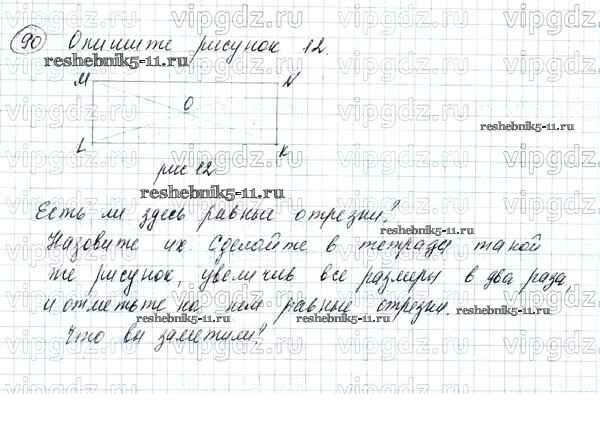 90 Опишите рисунок 12.
reshebnik5-11.ru
M N
O
reshebnik5-11.ru
L K
рис 12
reshebnik5-11.ru
Есть ли здесь равные отрезки?
reshebnik5-11.ru
Назовите их. Сделайте в тетради такой
же рисунок, увеличив все размеры в два раза,
и отметьте на нем равные отрезки.
reshebnik5-11.ru reshebnik5-11.ru reshebnik5-11.ru
Что вы заметили?
vipgdz.ru vipgdz.ru vipgdz.ru vipgdz.ru